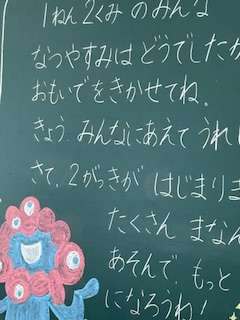 1ねん2くみ のみんな
なつやすみは どうでしたか
おもいでをきかせてね。
きょう、みんなにあえて うれし
さて、2がっきが はじまりま
たくさん まなん
あそんで、もっと
になろうね!